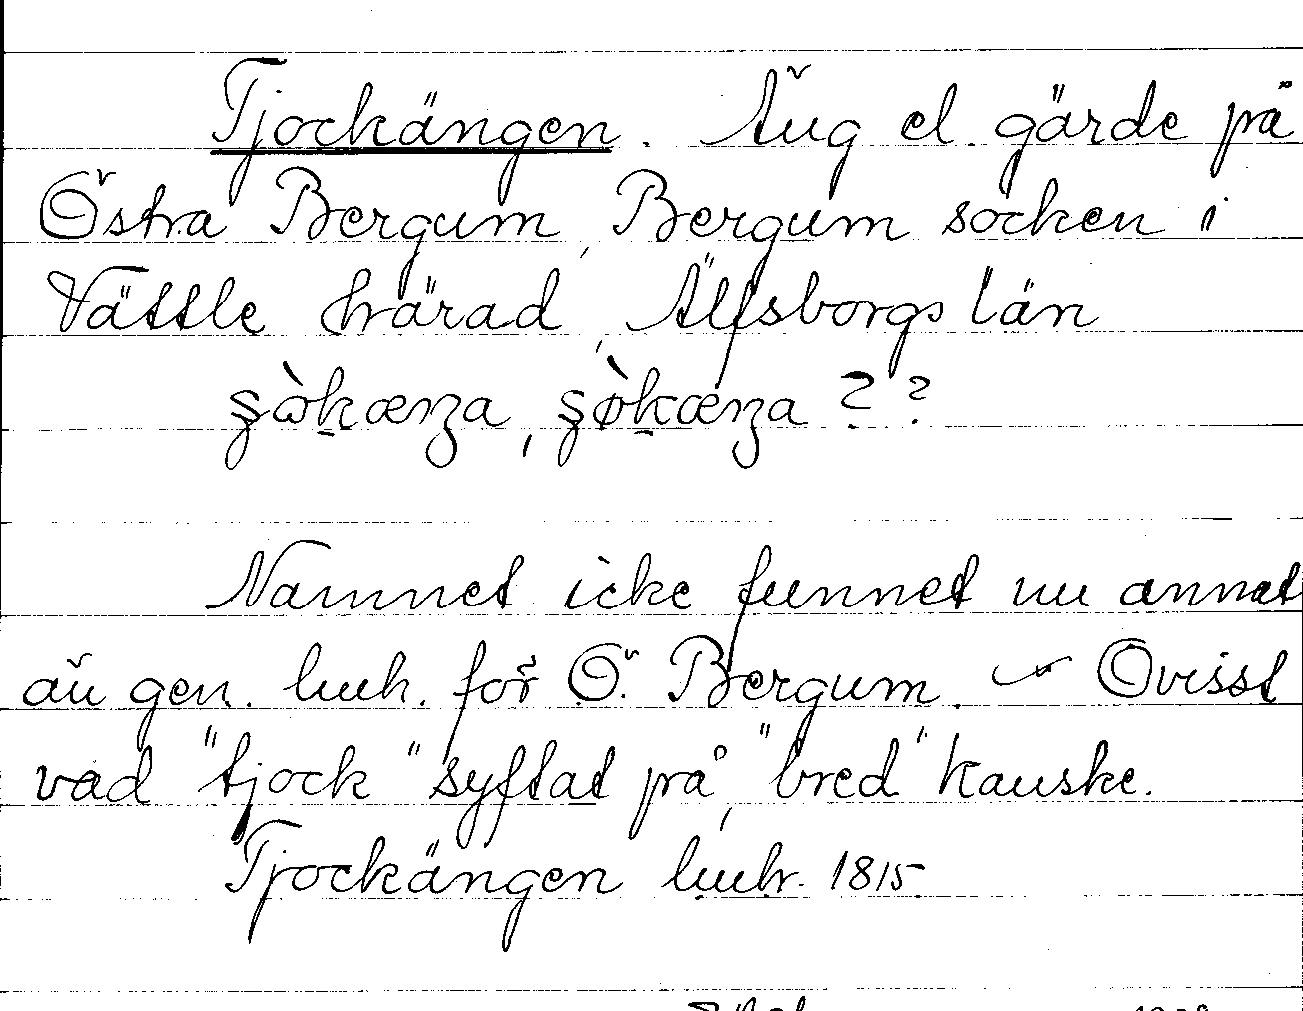 Tjockängen. Äng el. gärde på
Östra Bergum, Bergum socken i
Vättle härad, Älfsborgs län
? ?
Namnet icke funnet nu annat
än gen. lmk. för Ö. Bergum. ~ Ovisst
vad "tjock" syftat på, "bred" kanske.
Tjockängen lmk. 1815